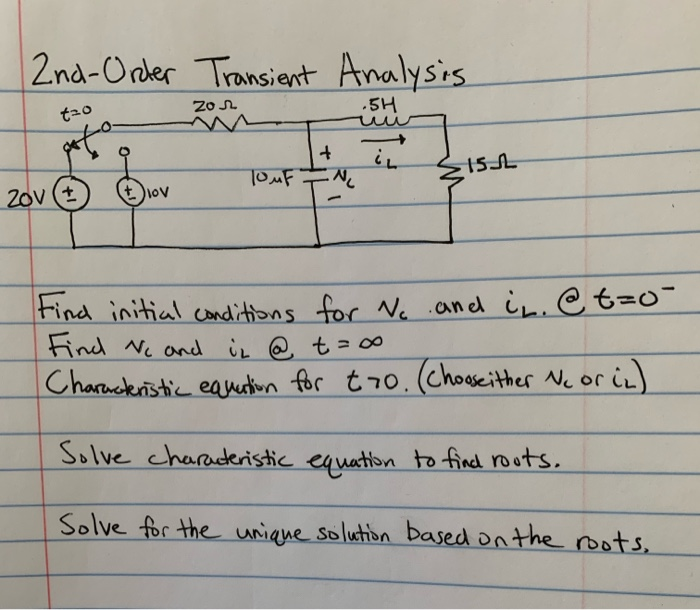 2nd-Order Transient Analysis
t=0 20Ω .5H
+ iL
10uF Vc 15Ω
20V ± ± 10V
-
Find initial conditions for Vc and iL. @ t=0-
Find Vc and iL @ t = ∞
Characteristic equation for t>0. (Choose either Vc or iL)
Solve characteristic equation to find roots.
Solve for the unique solution based on the roots.